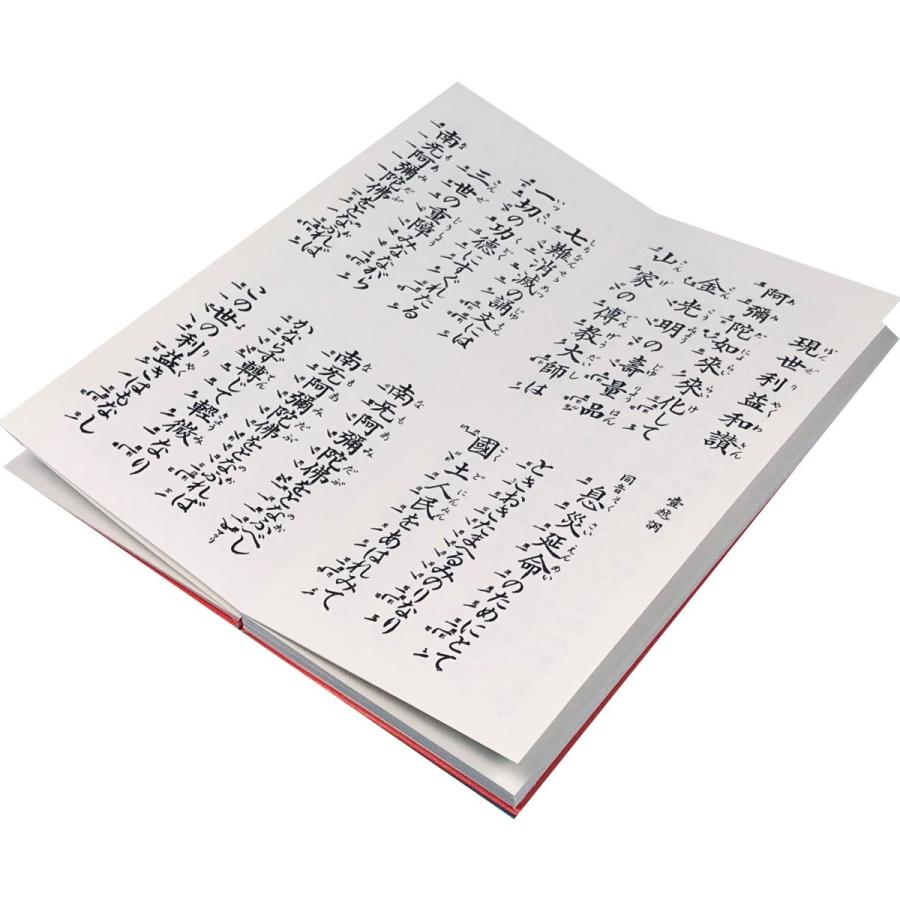 現世利益和讃
壹越調
阿彌陀如來來化して
同音
息災延命のためにとて
金光明の壽量品
ときおきたまへるみのりなり
山家の傳教大師は
國土人民をあはれみて
七難消滅の誦文には
南无阿彌陀佛をとなふべし
一切の功德にすぐれたる
南无阿彌陀佛をとなふれば
三世の重障みながら
かならず轉じて輕微なり
南无阿彌陀佛をとなふれば
この世の利益きはもなし